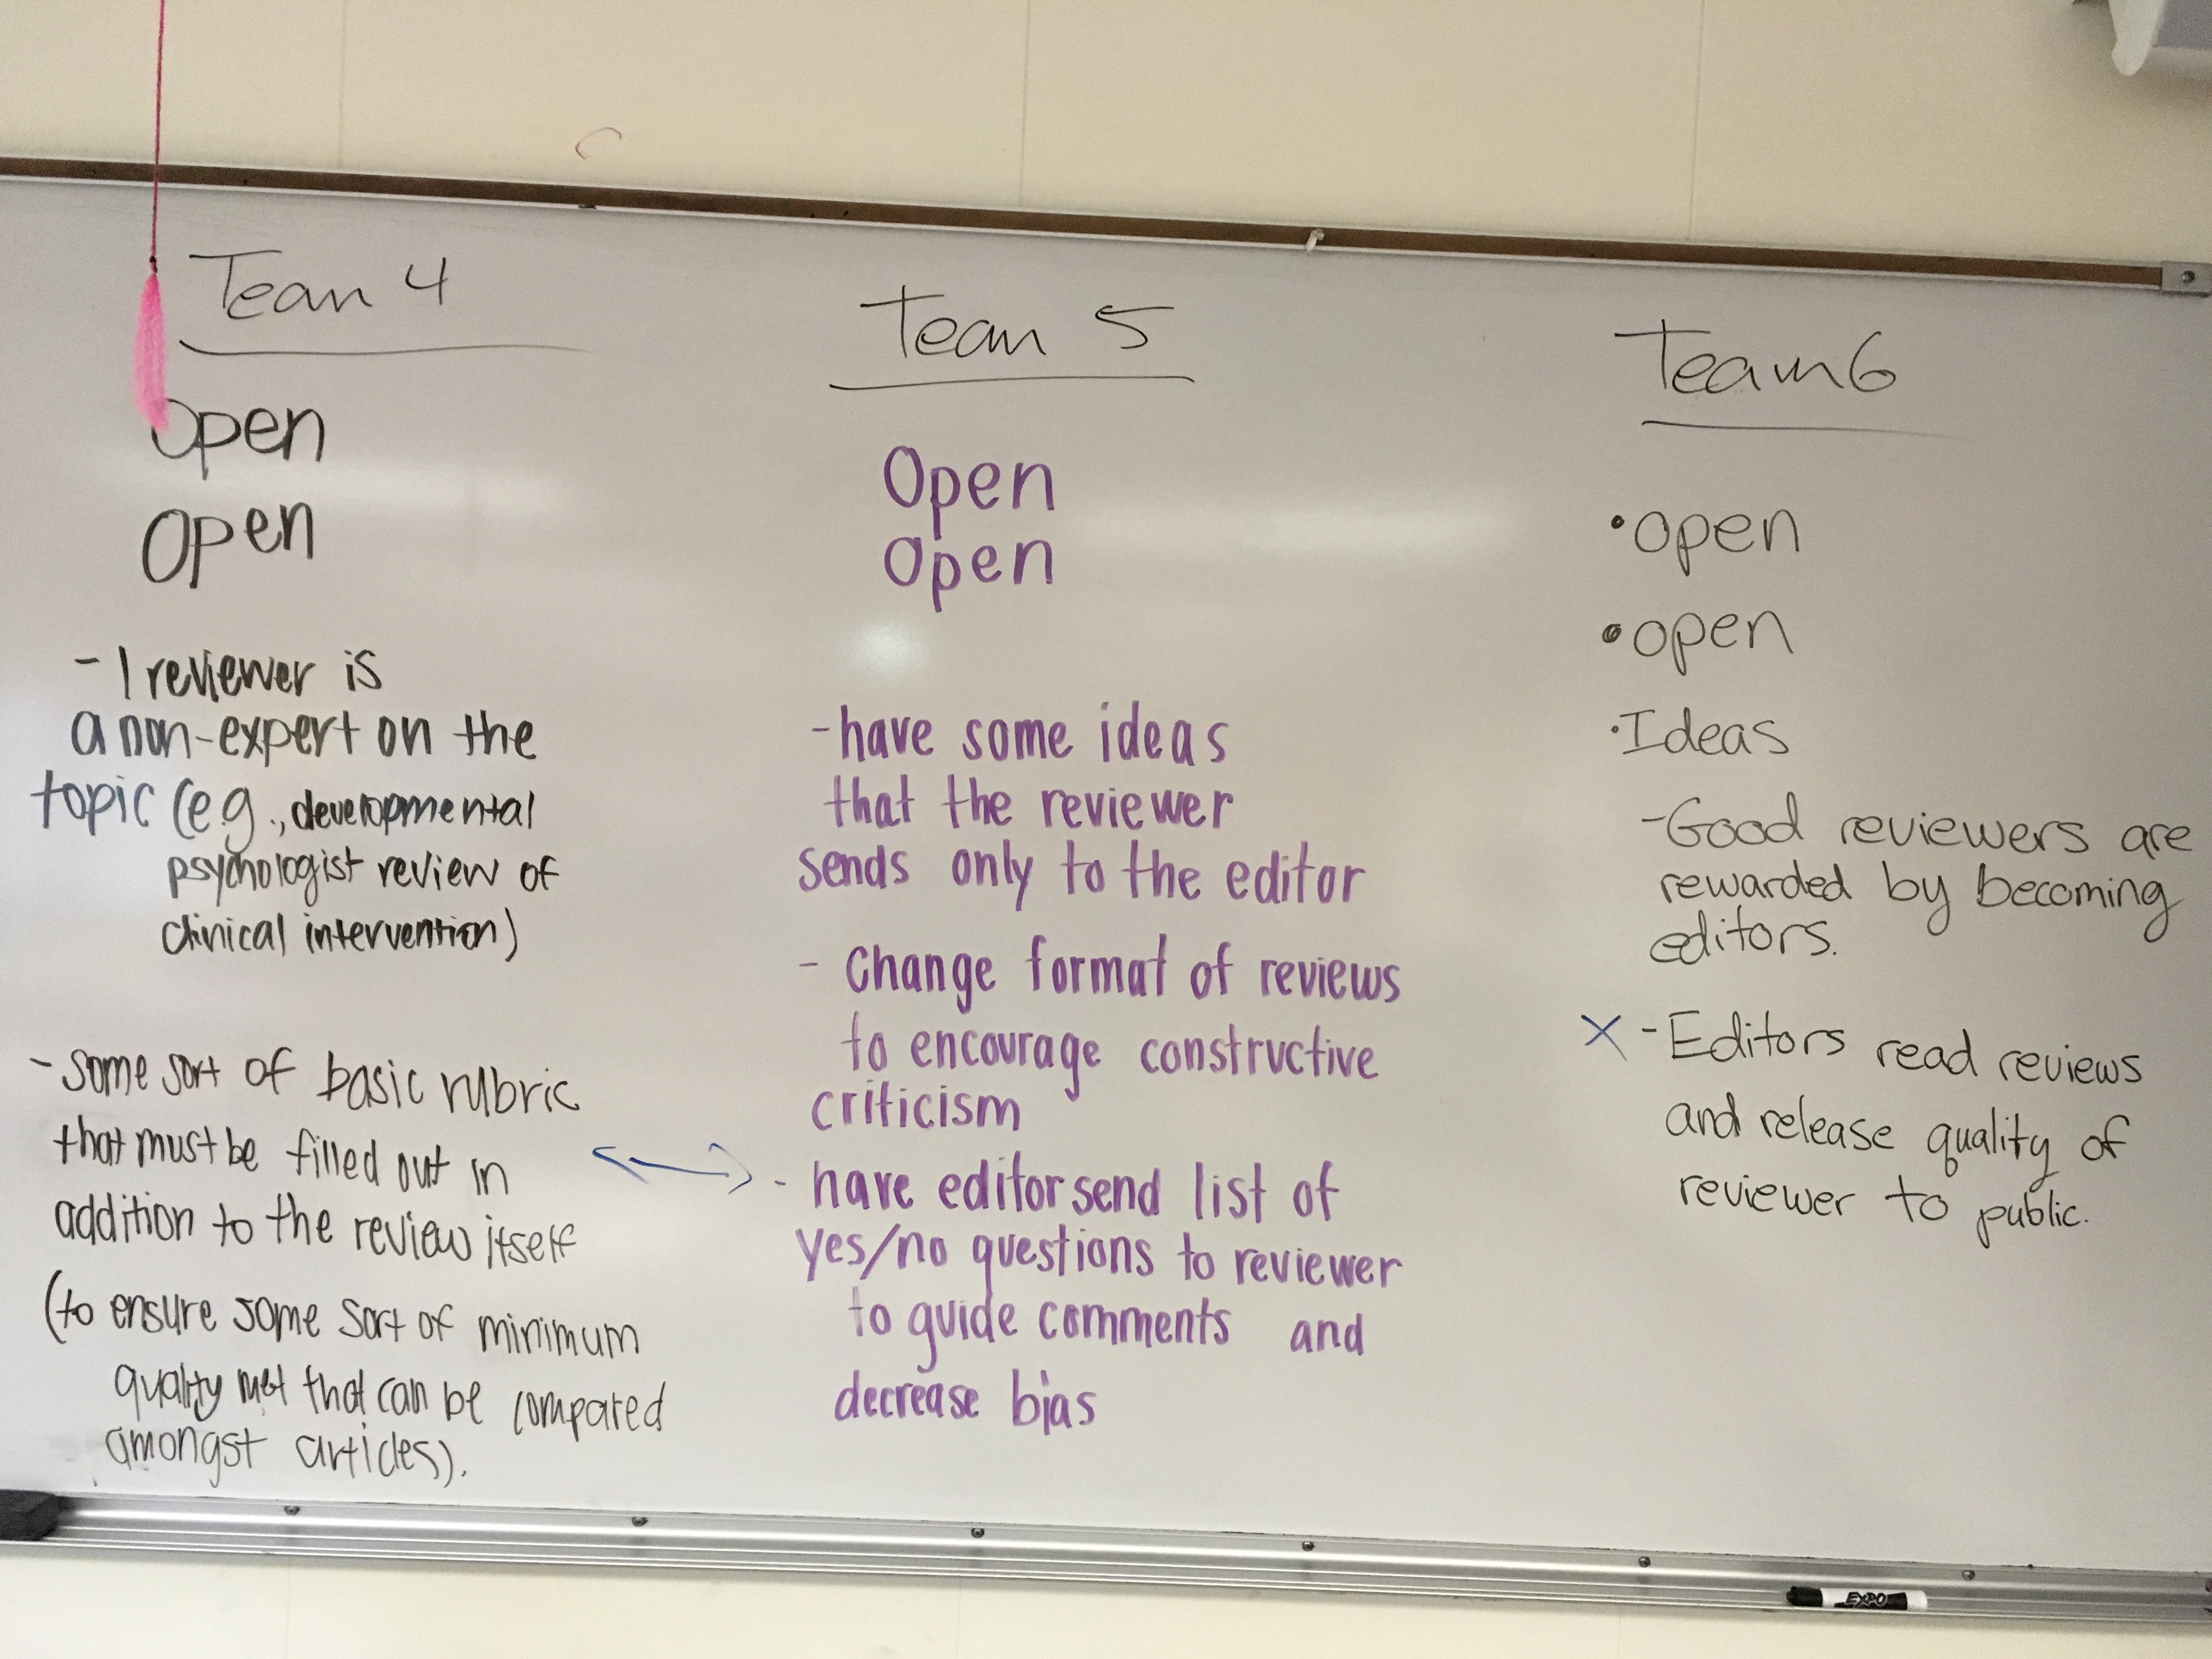 Team 4
Open
Open
- 1 reviewer is
a non-expert on the
topic (e.g., developmental
psychologist review of
clinical intervention)
- some sort of basic rubric
that must be filled out in
addition to the review itself
(to ensure some sort of minimum
quality met that can be compared
amongst articles).
Team 5
Open
Open
- have some ideas
that the reviewer
sends only to the editor
- Change format of reviews
to encourage constructive
criticism
- have editor send list of
yes/no questions to reviewer
to guide comments and
decrease bias
Team 6
• open
• open
• Ideas
- Good reviewers are
rewarded by becoming
editors.
X - Editors read reviews
and release quality of
reviewer to public.
EXPO